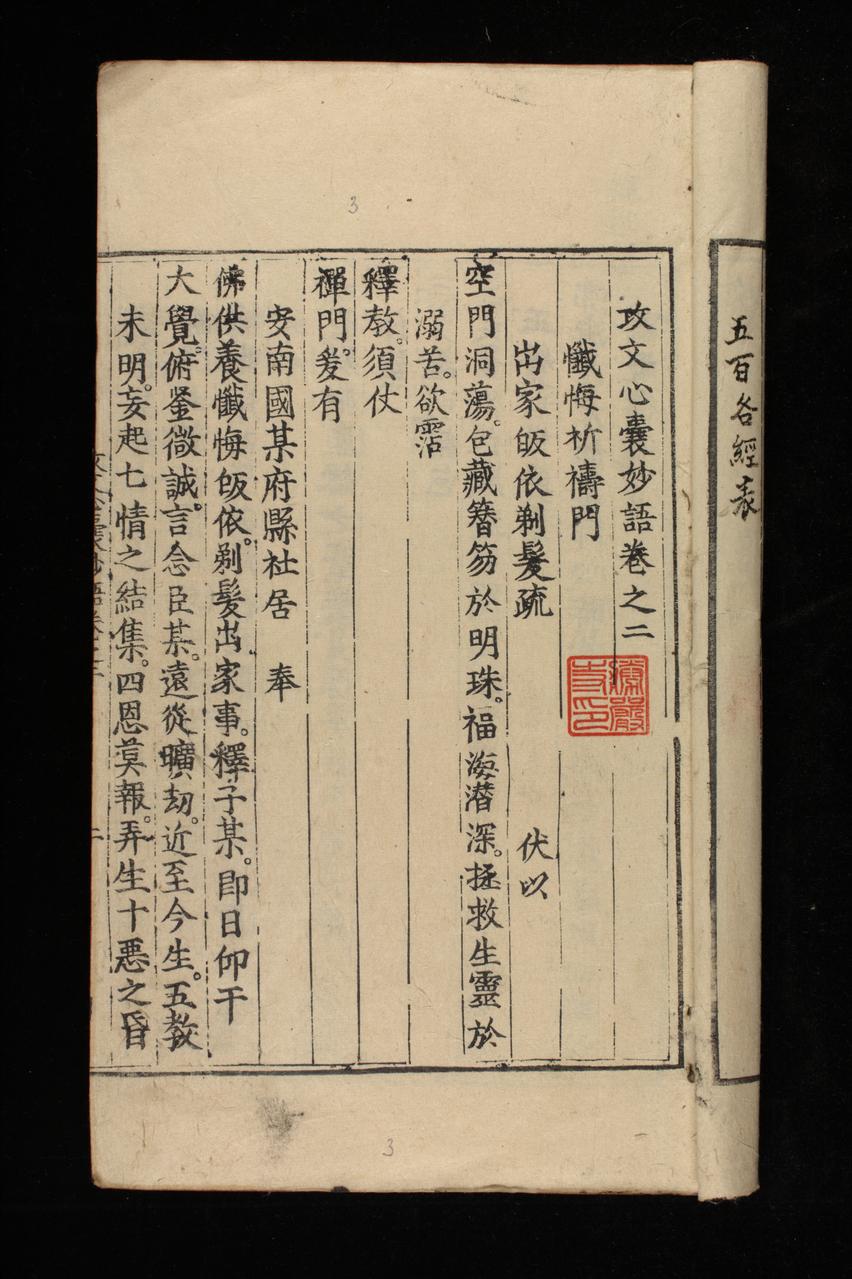 五百各經表
攻文心囊妙語卷之二
懺悔祈禱門
出家皈依剃髮疏 伏以
空門洞蕩。包藏簪笏於明珠。福海潛深。拯救生靈於
溺苦。欲霑
釋教。須仗
禪門。爰有
安南國某府縣社居 奉
佛供養懺悔皈依。剃髮出家事。釋子某。即日仰干
大覺。俯鉴微誠。言念臣某。遠從曠劫。近至今生。五教
未明。妄起七情之結集。四恩莫報。弄生十悪之昏
3
3